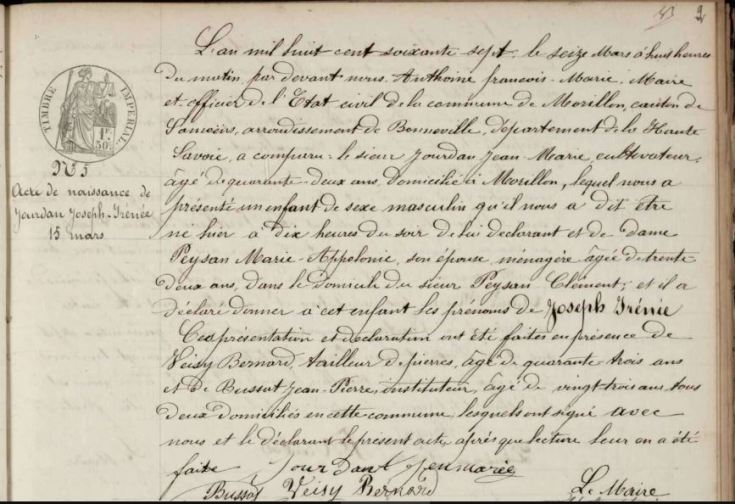 2
L'an mil huit cent soixante sept, le seize Mars à huit heures
du matin par devant nous Anthoine françois-Marie, Maire
et officier de l'Etat civil de la commune de Morillon, canton de
Samoëns, arrondissement de Bonneville, département de la Haute
Savoie, a comparu: le sieur Jourdan Jean-Marie, cultivateur,
âgé de quarante-deux ans, domicilié à Morillon, lequel nous a
présenté un enfant de sexe masculin qu'il nous a dit être
né hier à dix heures du soir de lui déclarant et de dame
Peysan Marie-Appolonie, son épouse, ménagère âgée de trente
deux ans, dans le domicile du sieur Peysan Clément; et il a
déclaré donner à cet enfant les prénoms de Joseph Irénée
Ces présentation et déclaration ont été faites en présence de
Veisy Bernard, tailleur de pierres, âgé de quarante-trois ans
et de Bussat Jean-Pierre, instituteur, âgé de vingt trois ans tous
deux domiciliés en cette commune, lesquels ont signé avec
nous et le déclarant le présent acte, après que lecture leur en a été
faite Jourdant Jenmarie
Bussat Veisy Bernard Le Maire
TIMBRE IMPÉRIAL
1F.
50c
N° 5
Acte de naissance de
Jourdan Joseph-Irénée
15 mars